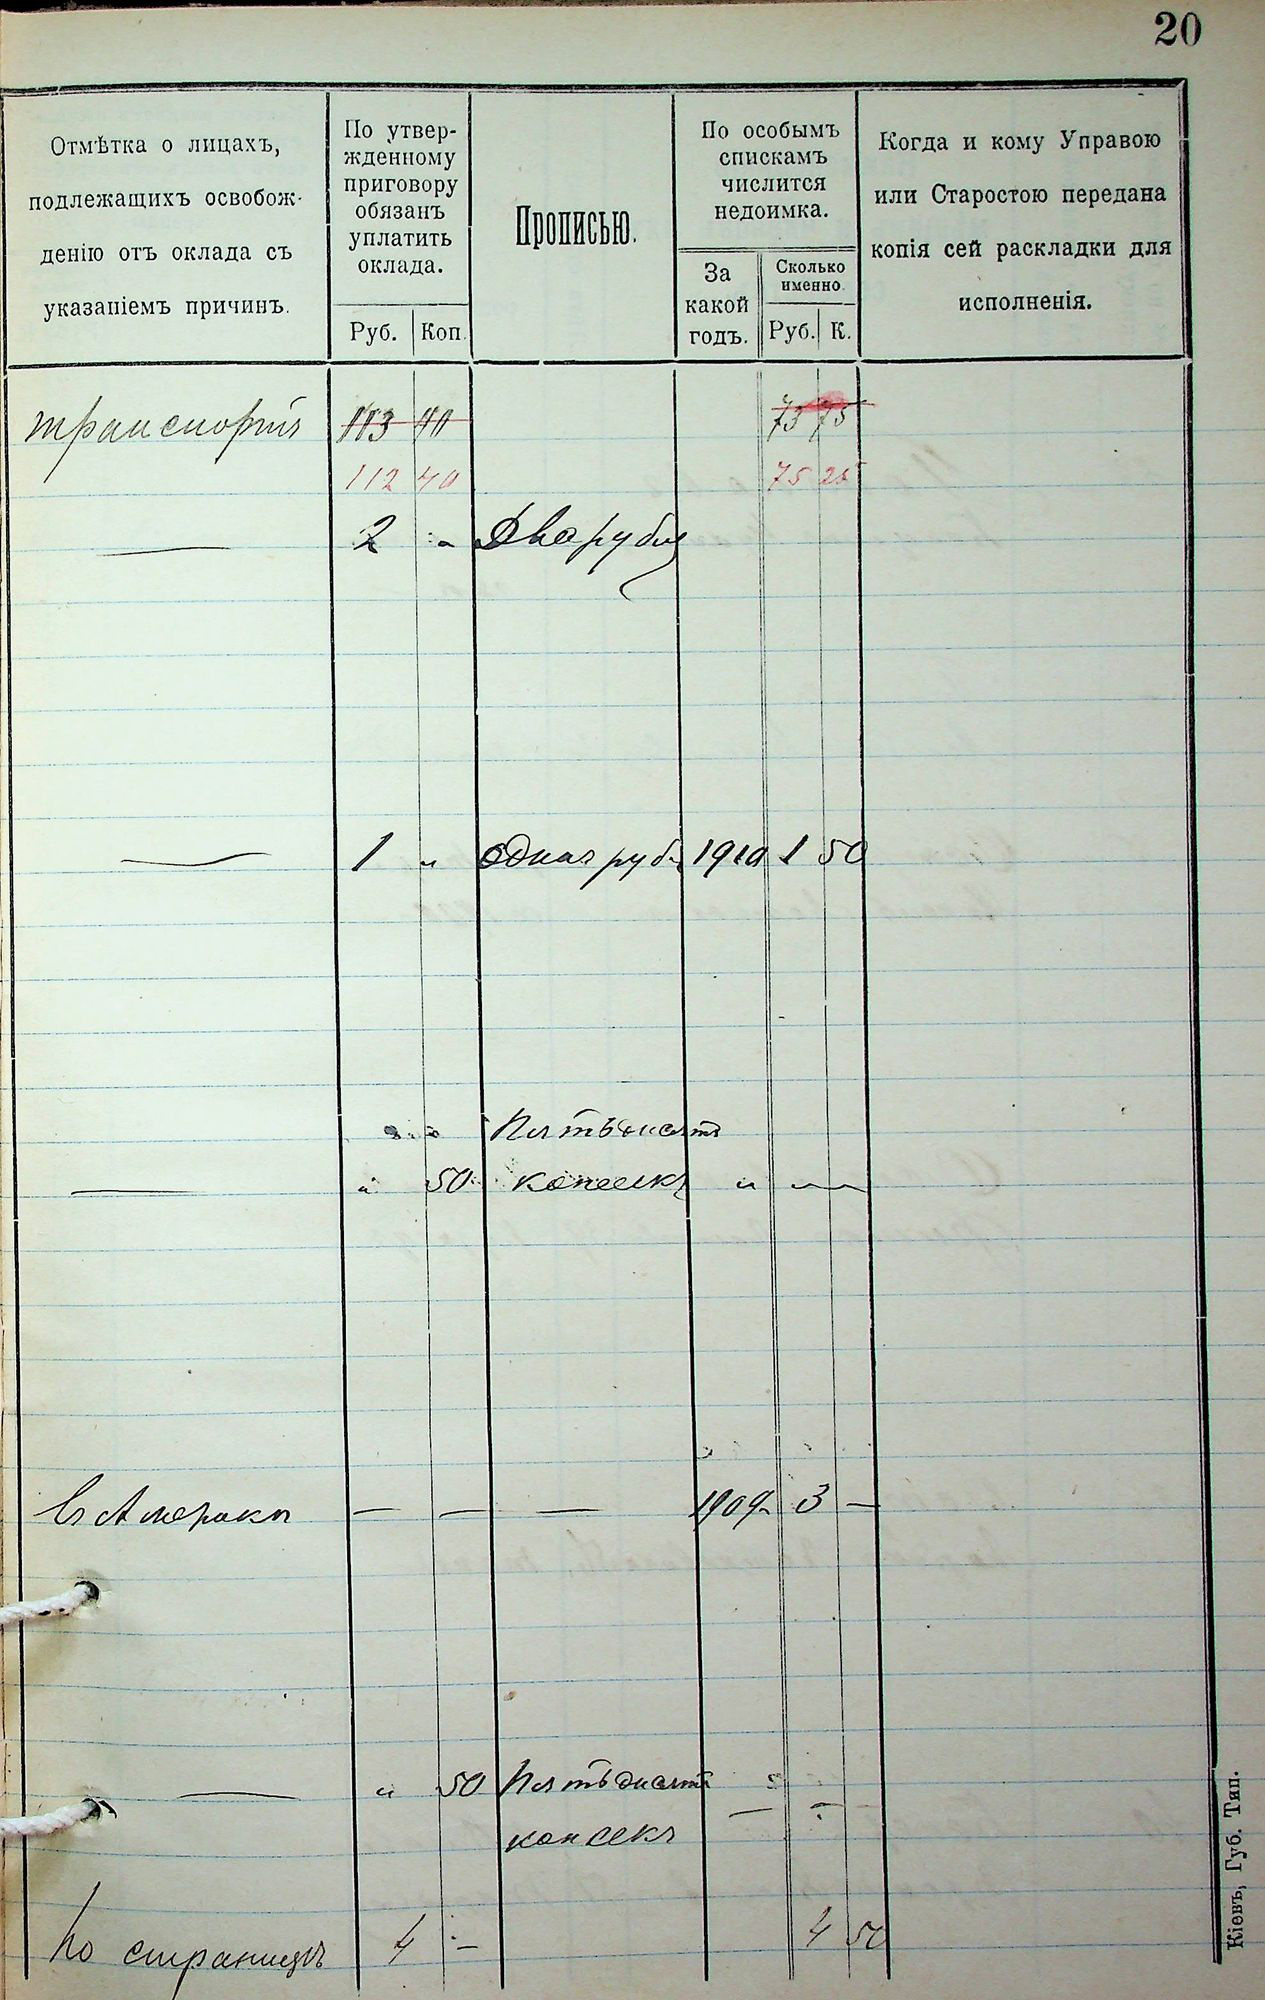 20
Отмѣтка о лицахъ,
подлежащихъ освобож-
денію отъ оклада съ
указаніемъ причинъ.
По утвер-
жденному
приговору
обязанъ
уплатить
оклада.
Руб. Коп.
Прописью.
По особымъ
спискамъ
числится
недоимка.
За
какой
годъ.
Сколько
именно.
Руб. К.
Когда и кому Управою
или Старостою передана
копія сей раскладки для
исполненія.
транспортъ 113 40 73 75
112 40 75 25
— 2 " Два рубля
— 1 " один руб. 1910 1 50
Пятьдесятъ
— " 50 копеекъ " " "
въ Америкѣ — — — 1909 3 —
— " 50 Пятьдесятъ — —
копеекъ
по страницѣ 4 — 4 50
Кіевъ, Губ. Тип.